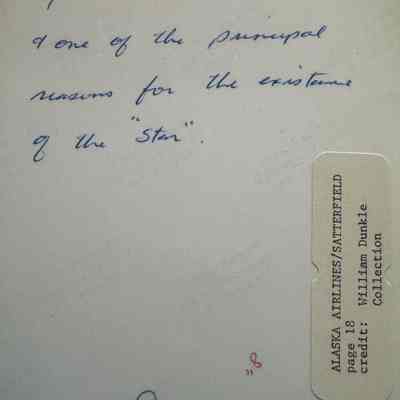 & one of the principal
reasons for the existence
of the "Star".
ALASKA AIRLINES/SATTERFIELD
page 18
credit: William Dunkle
Collection